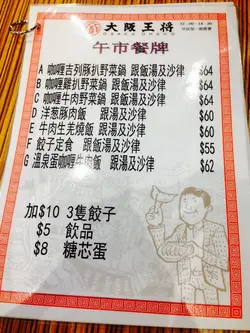 大阪王将
OSAKA OHSHO
午市餐牌
A 咖喱吉列豚扒野菜鍋 跟飯湯及沙律 $64
B 咖喱雞扒野菜鍋 跟飯湯及沙律 $64
C 咖喱牛肉野菜鍋 跟飯湯及沙律 $64
D 洋葱豚肉飯 跟湯及沙律 $60
E 牛肉生羌燒飯 跟湯及沙律 $60
F 餃子定食 跟飯湯及沙律 $55
G 溫泉蛋咖喱牛肉飯 跟湯及沙律 $62
加$10 3隻餃子
$5 飲品
$8 糖芯蛋